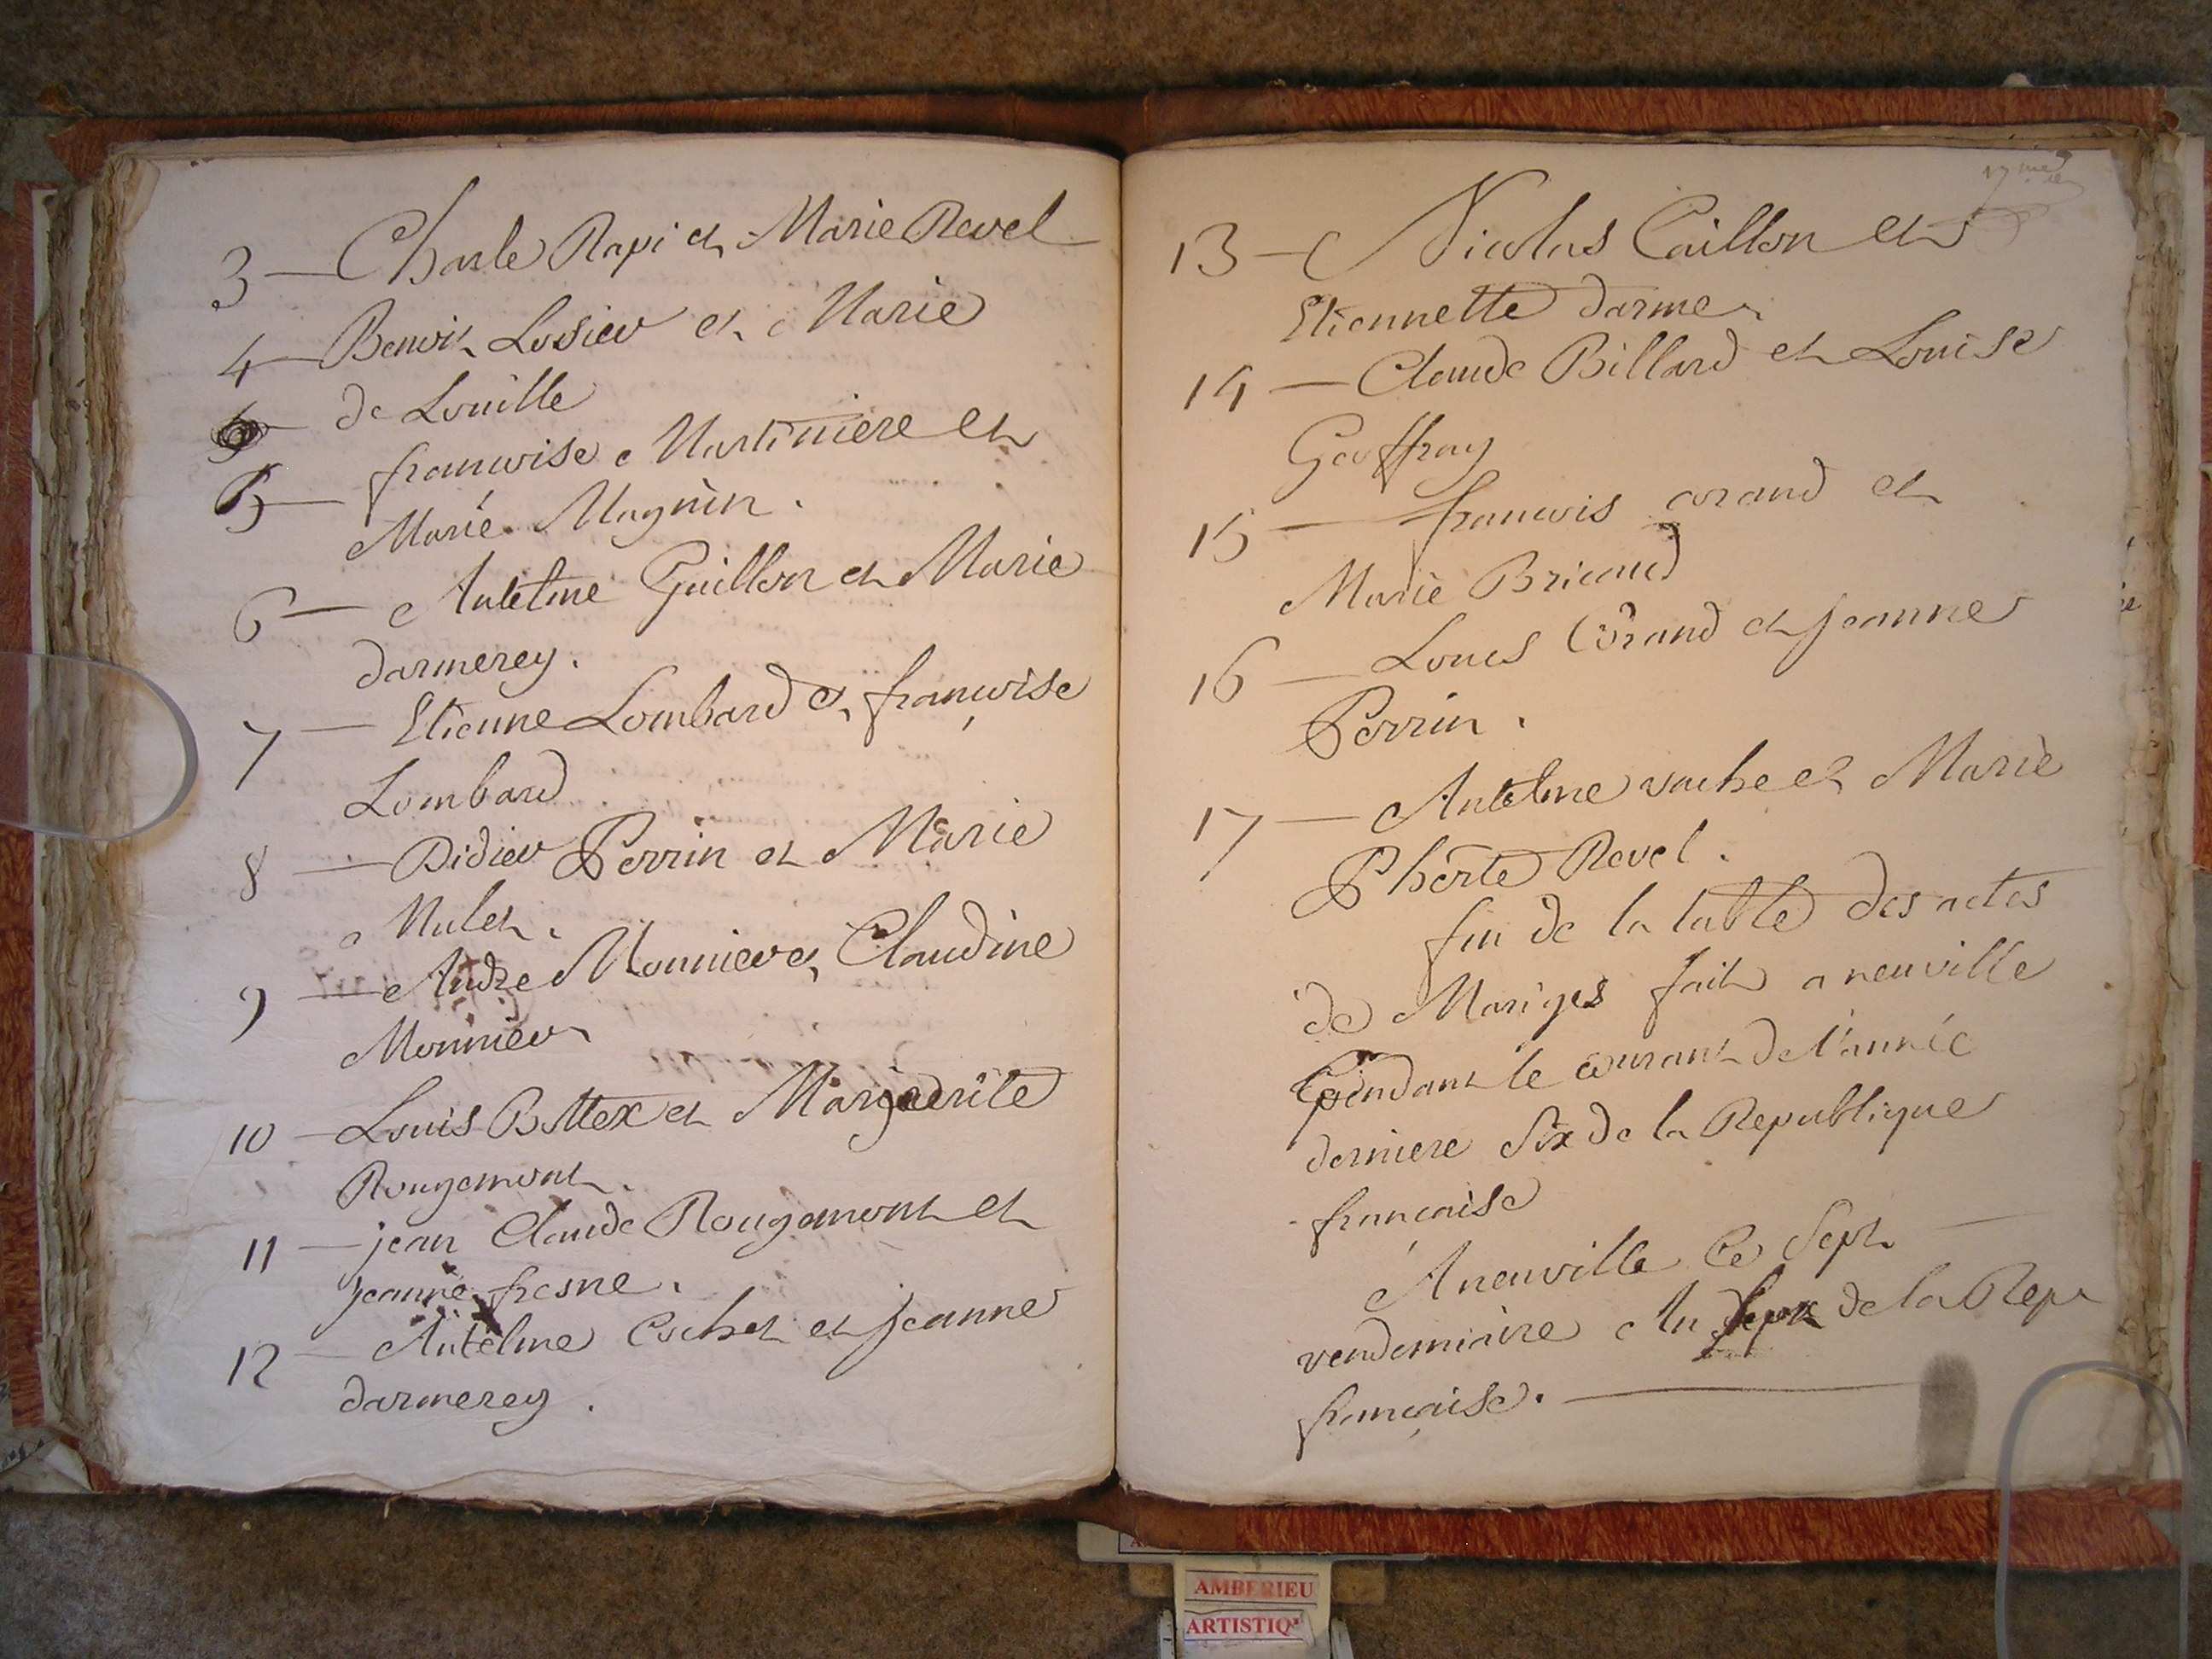 3 — Charle Rapi et Marie Revel
4 — Benoit Losier et Marie
de Louille
5 — francoise Martiniere et
Marie Magnin.
6 — Antelme Guillon et Marie
darmerey.
7 — Etienne Lombard et françoise
Lombard
8 — Didier Perrin et Marie
Mulet.
9 — Andre Monnier et Claudine
Monnier
10 — Louis Bottex et Marguerite
Rougemont.
11 — jean Claude Rougemont et
jeanne fresne.
12 — Antelme Cochet et jeanne
darmerey.
13 — Nicolas Caillon et
Etiennette darme
14 — Claude Billard et Louise
Geoffray
15 — francois corand et
Marie Bricaud
16 — Louis Corand et jeanne
Perrin.
17 — Antelme vache et Marie
Revel.
fin de la table des actes
de Mariges fait a neuville
pendant le courant de l'année
derniere Six de la Republique
francaise
A neuville le Sept —
vendemiaire An Sept de la Repe
française. —
AMBERIEU
ARTISTIQ